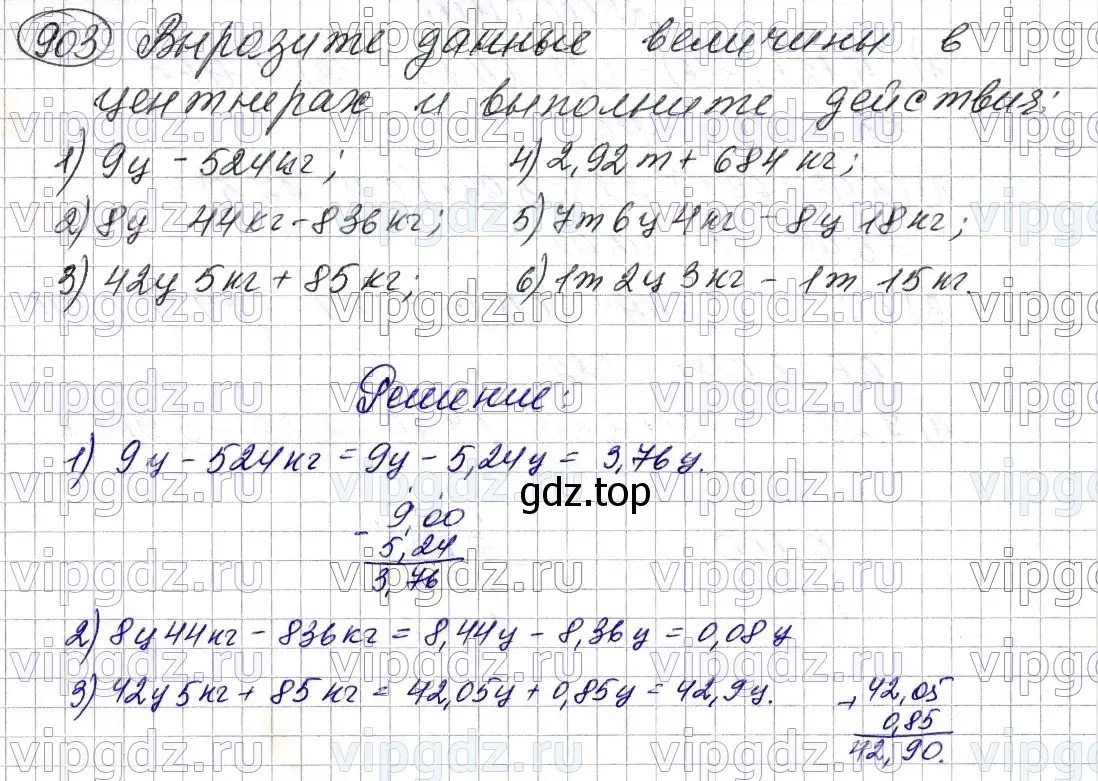 903 Выразите данные величины в
центнерах и выполните действия:
1) 9ц - 524кг; 4) 2,92т + 684 кг;
2) 8ц 44кг - 836кг; 5) 7т 6ц 4кг - 8ц 18кг;
3) 42ц 5кг + 85кг; 6) 1т 2ц 3кг - 1т 15кг.
Решение:
1) 9ц - 524кг = 9ц - 5,24ц = 3,76ц.
gdz.top
9,00
- 5,24
3,76
2) 8ц 44кг - 836кг = 8,44ц - 8,36ц = 0,08ц
3) 42ц 5кг + 85кг = 42,05ц + 0,85ц = 42,9ц.
+ 42,05
0,85
42,90.
vipgdz.ru